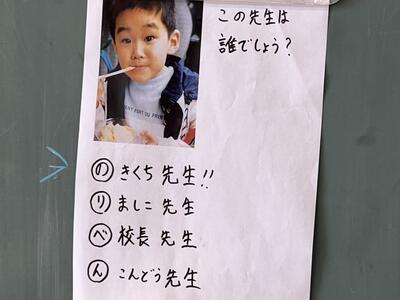 この先生は
誰でしょう?
の きくち先生!!
り ましこ先生
べ 校長先生
ん こんどう先生